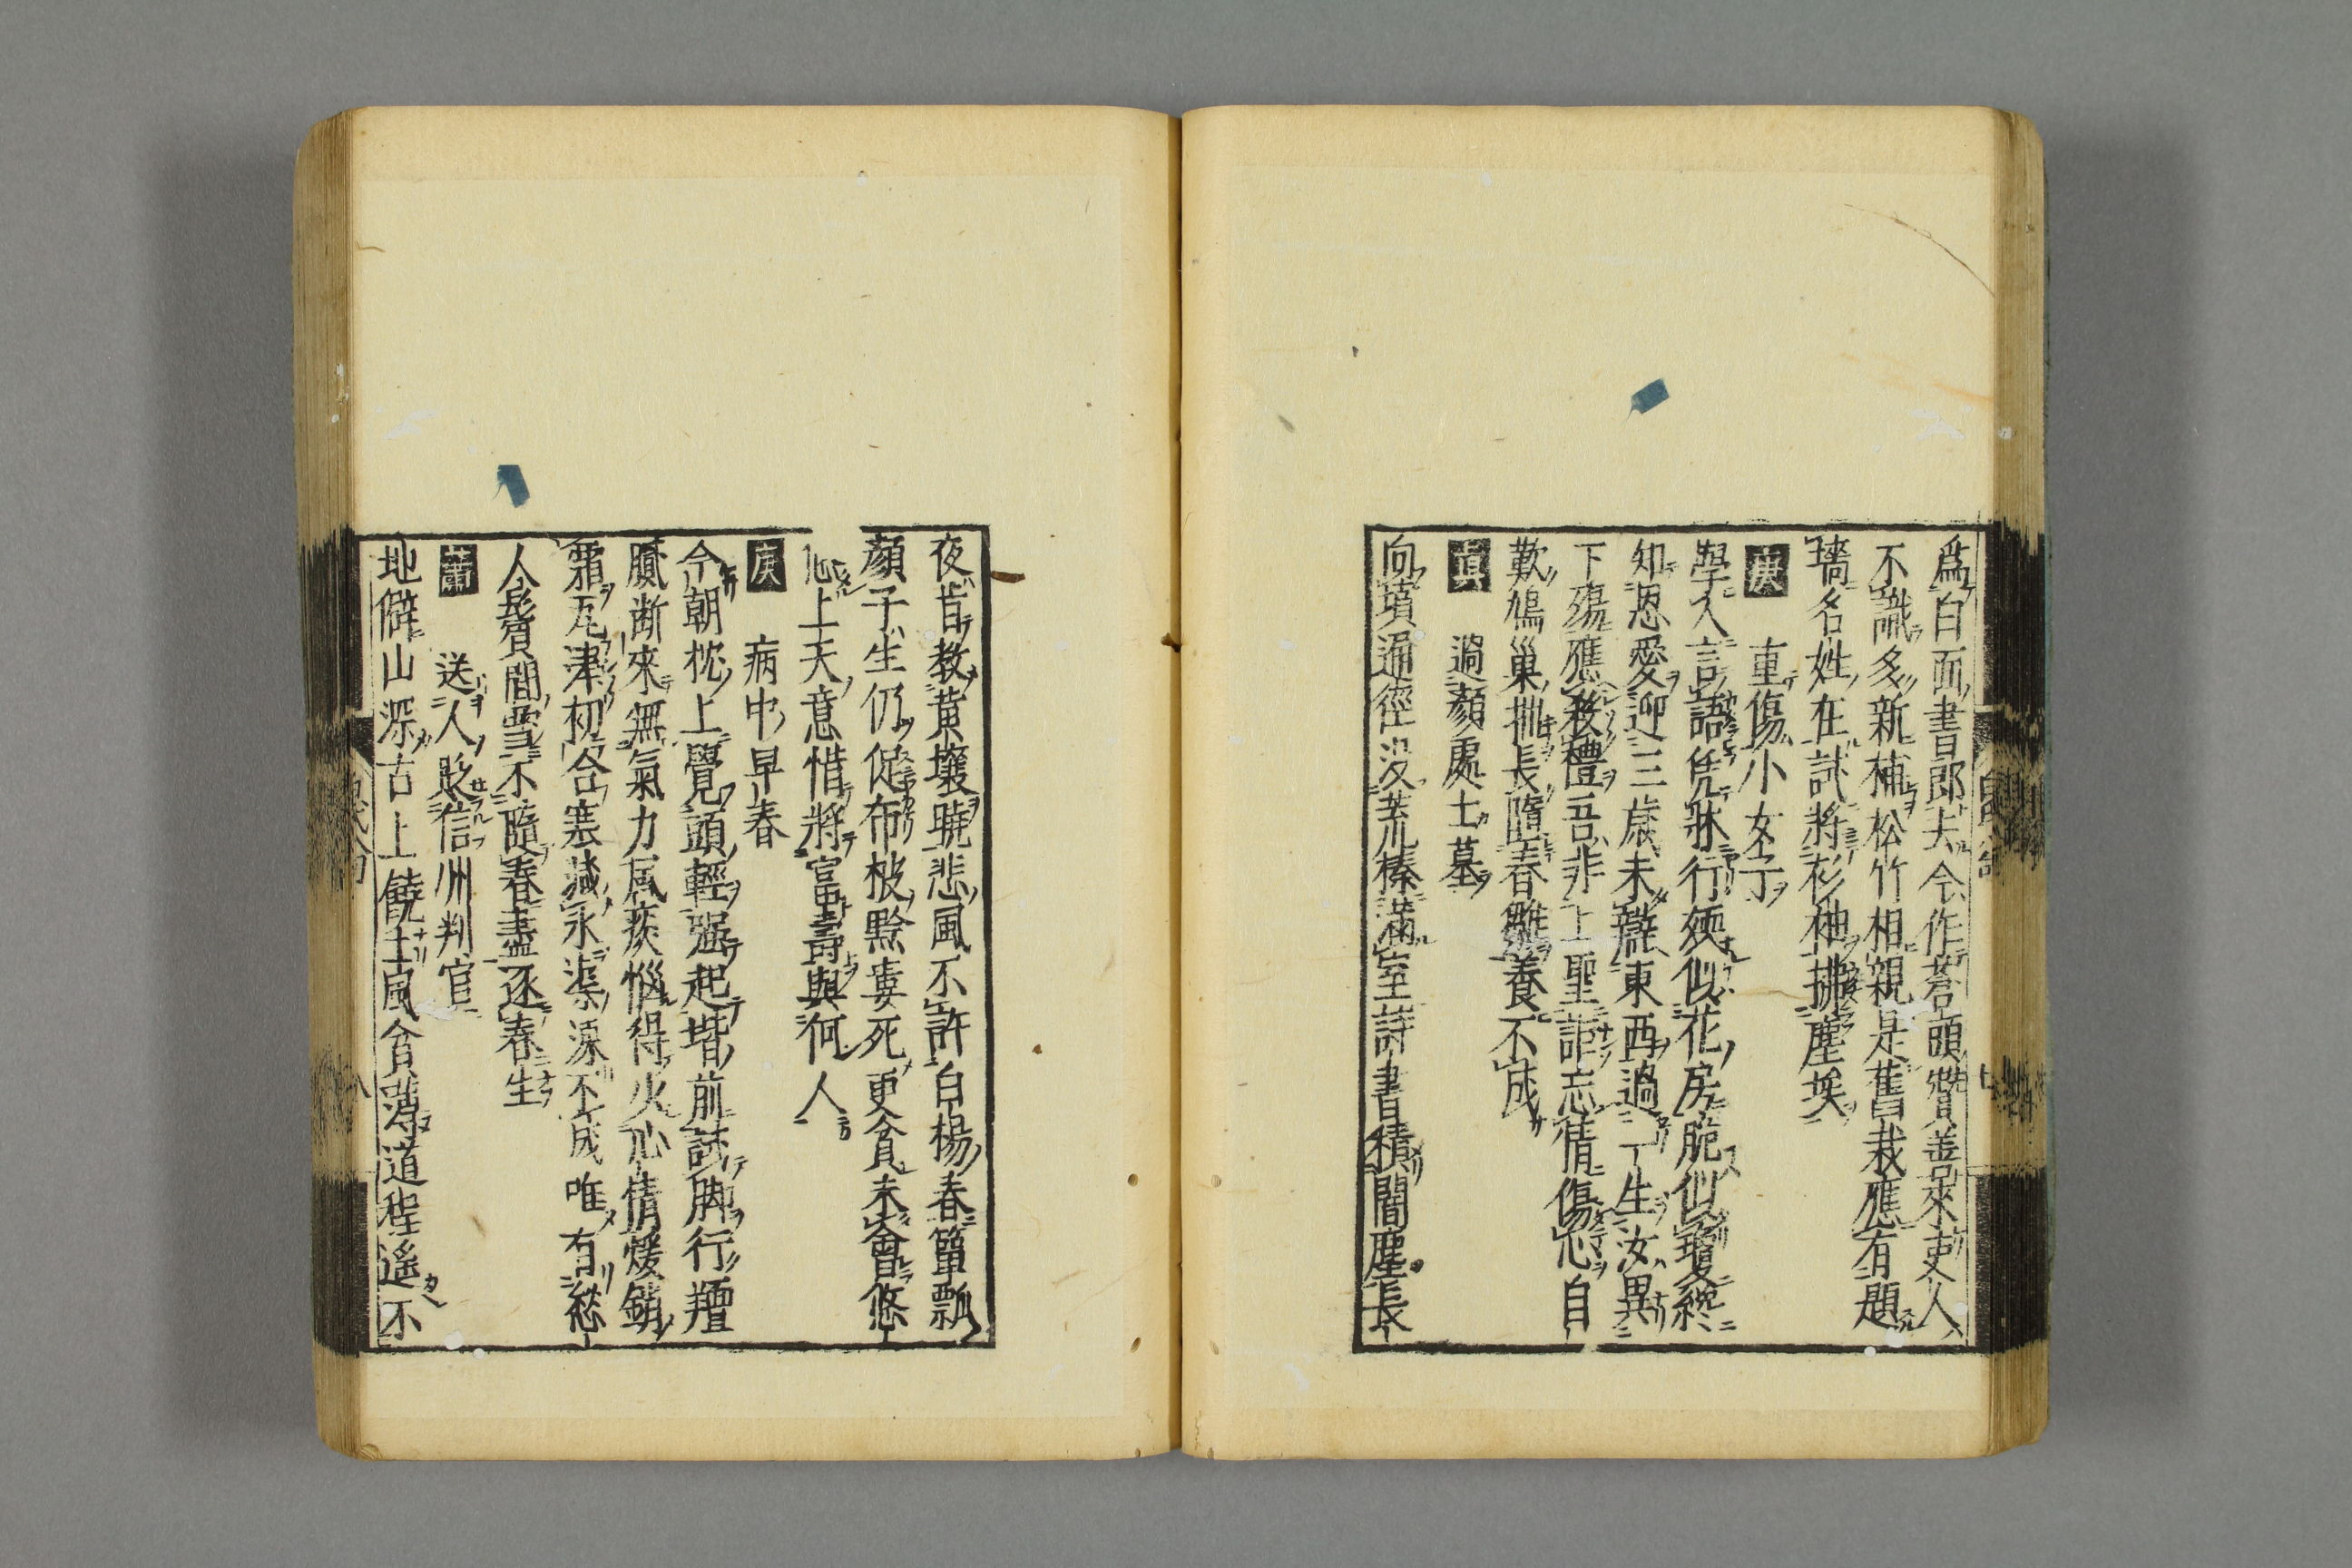 爲白面書郎去令作蒼頭贊善來吏人
不識多新補松竹相親是舊栽應有題
墻名姓在試將衫袖拂塵埃
庚　重傷小女子
學人言語凭牀行嫩似花房脆似瓊纔
知恩愛迎三歳未辨東西過一生汝異
下殤應殺禮吾非上聖詎忘情傷心自
歎鳩巢拙長墮春雛養不成
眞　過顏處士墓
向墳遍徑没荒榛滿室詩書積闇塵長
夜肯教黄壤曉悲風不許白楊春簞瓢
顏子生仍促布被黔婁死更貧未會悠
悠上天意惜將富壽與何人
庚　病中早春
今朝枕上覺頭輕强起堦前試脚行羶
膩斷來無氣力風痰惱得少心情煖銷
霜瓦津初合寒減氷渠凍不成唯有愁
人鬢間雪不隨春盡逐春生
蕭　送人貶信州判官
地僻山深古上饒土風貧薄道程遙不